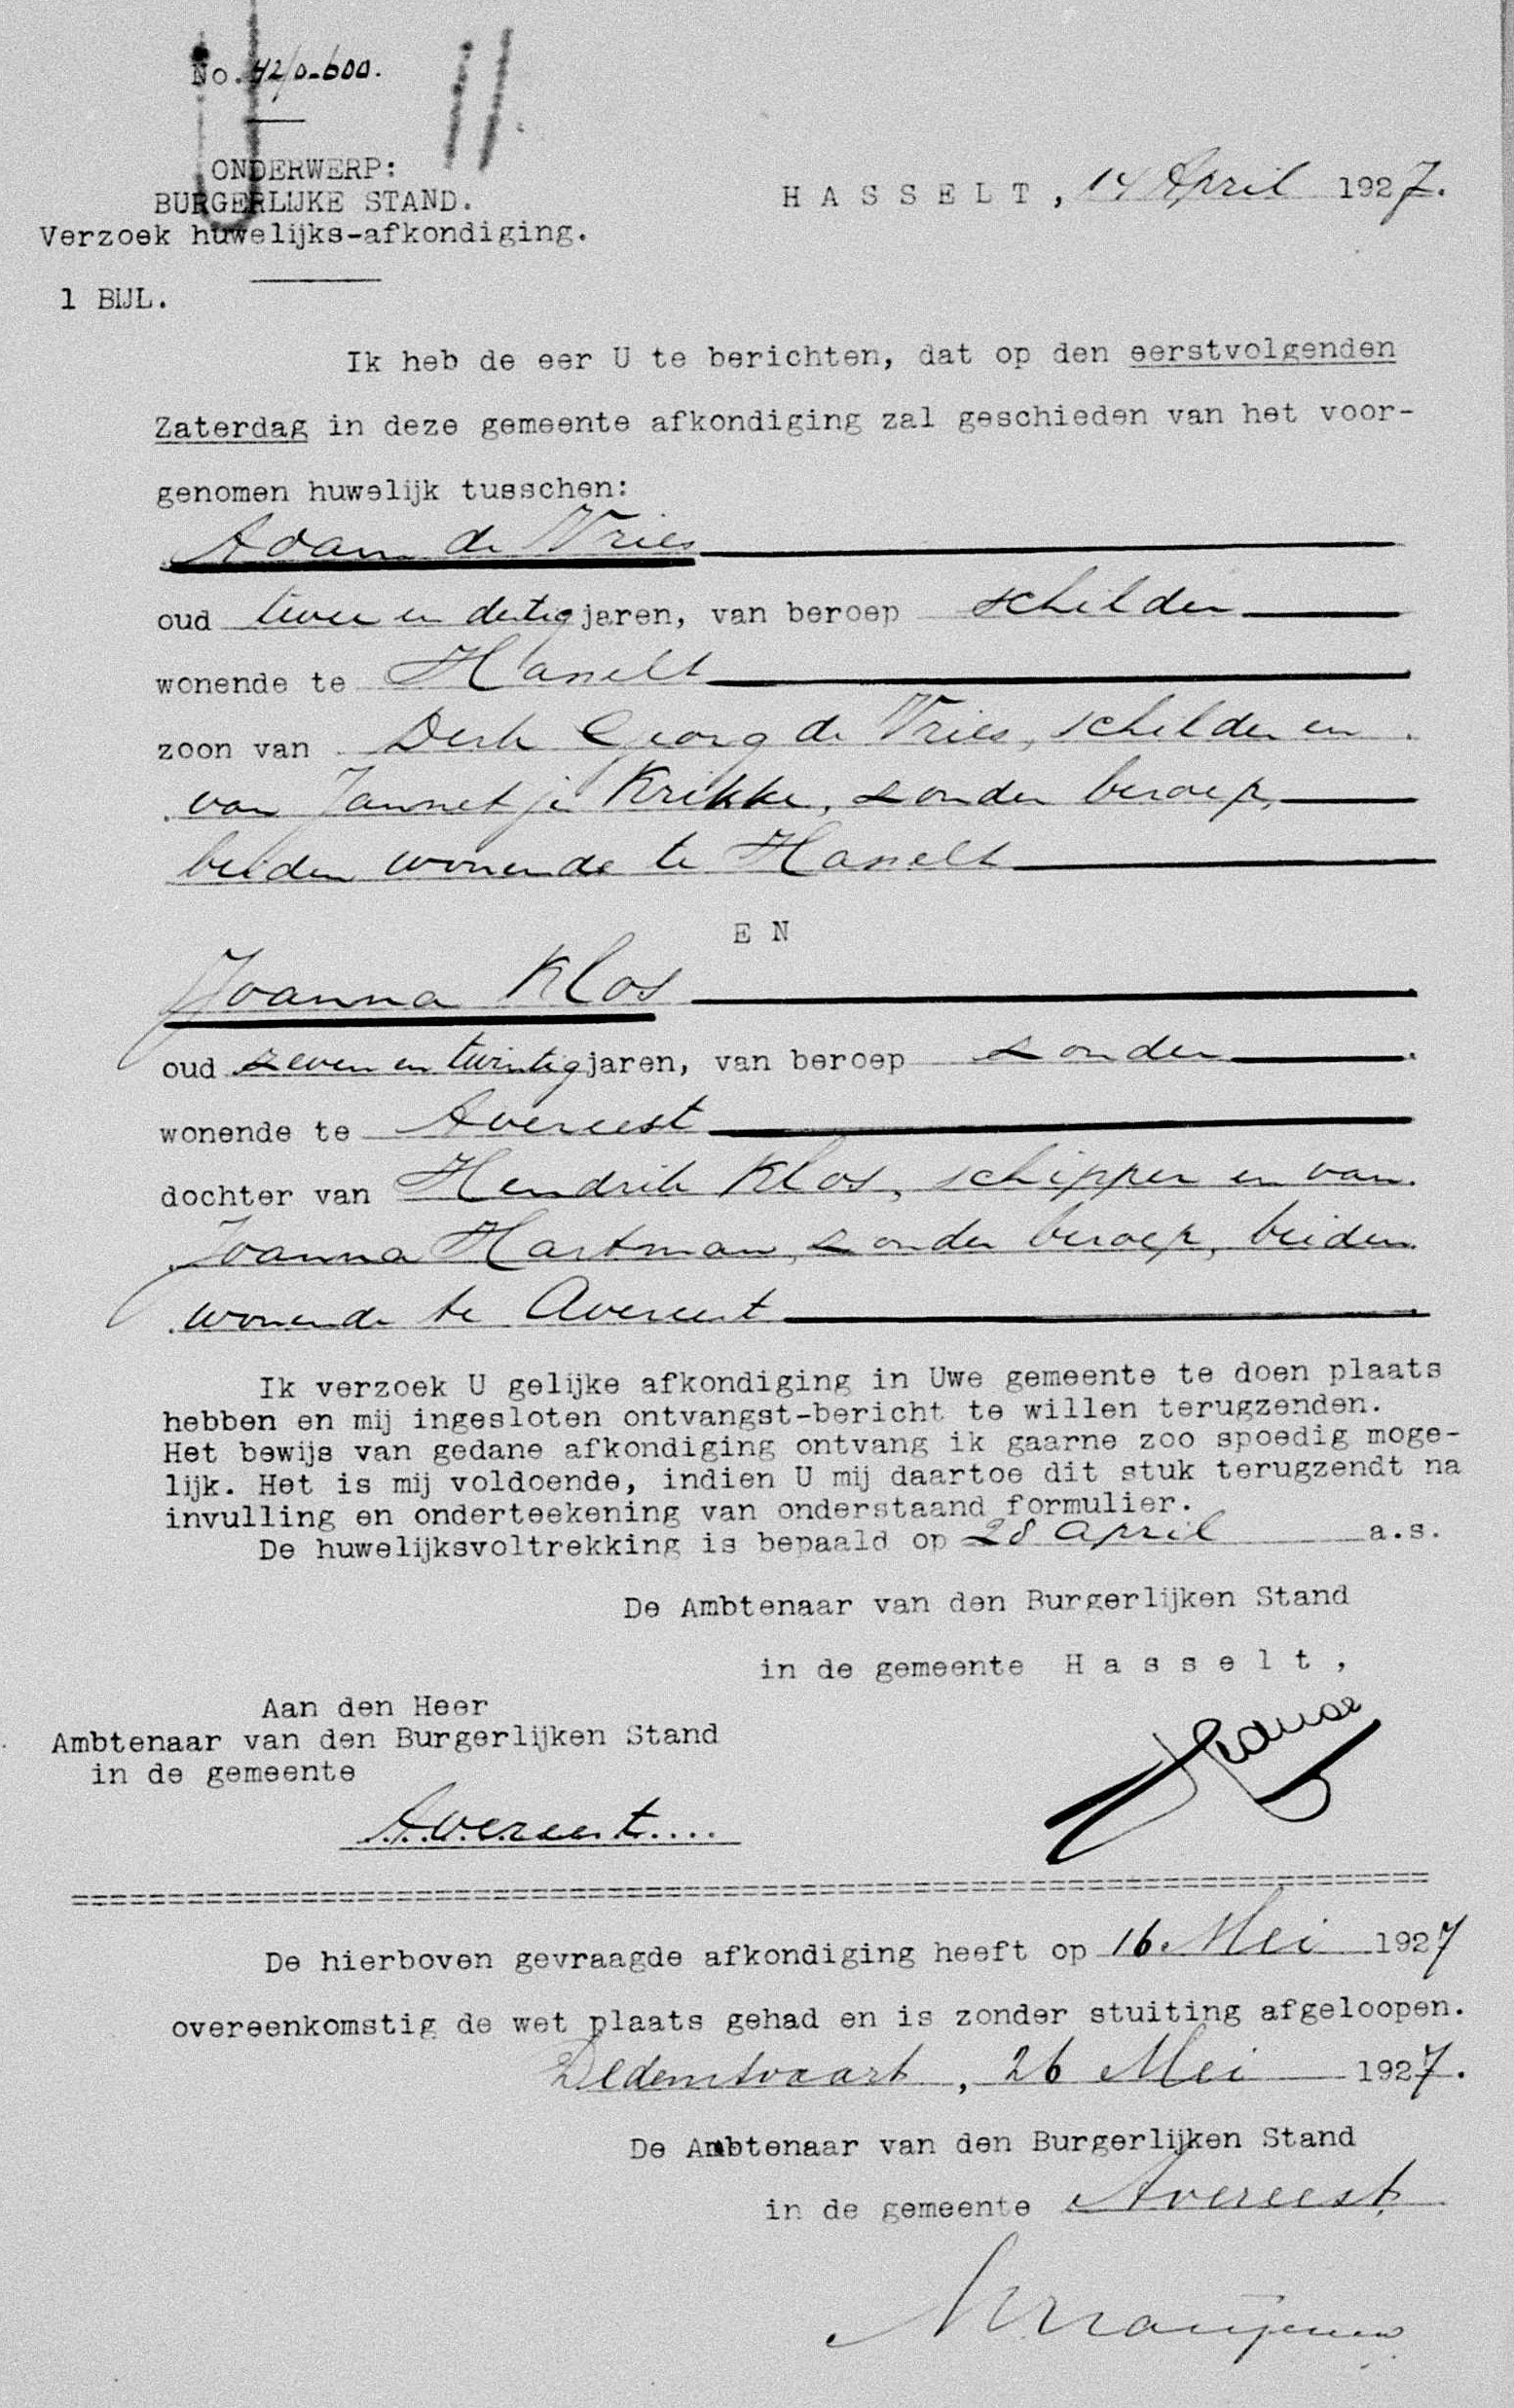 No. 42/0-600.
11
ONDERWERP:
BURGERLIJKE STAND.
HASSELT, 14 April 1927.
Verzoek huwelijks-afkondiging.
1 BIJL.
Ik heb de eer U te berichten, dat op den eerstvolgenden
Zaterdag in deze gemeente afkondiging zal geschieden van het voor-
genomen huwelijk tusschen:
Adam de Vries
oud twee en dertig jaren, van beroep schilder
wonende te Hasselt
zoon van Derk Georg de Vries, schilder en
van Jannetje Krikke, zonder beroep,
beiden wonende te Hasselt
EN
Joanna Klos
oud zeven en twintig jaren, van beroep zonder
wonende te Avereest
dochter van Hendrik Klos, schipper en van
Joanna Hartman, zonder beroep, beiden
wonende te Avereest
Ik verzoek U gelijke afkondiging in Uwe gemeente te doen plaats
hebben en mij ingesloten ontvangst-bericht te willen terugzenden.
Het bewijs van gedane afkondiging ontvang ik gaarne zoo spoedig moge-
lijk. Het is mij voldoende, indien U mij daartoe dit stuk terugzendt na
invulling en onderteekening van onderstaand formulier.
De huwelijksvoltrekking is bepaald op 28 April a.s.
De Ambtenaar van den Burgerlijken Stand
in de gemeente Hasselt,
Aan den Heer
Ambtenaar van den Burgerlijken Stand
in de gemeente
Avereest
De hierboven gevraagde afkondiging heeft op 16 Mei 1927
overeenkomstig de wet plaats gehad en is zonder stuiting afgeloopen.
Dedemsvaart, 26 Mei 1927.
De Ambtenaar van den Burgerlijken Stand
in de gemeente Avereest